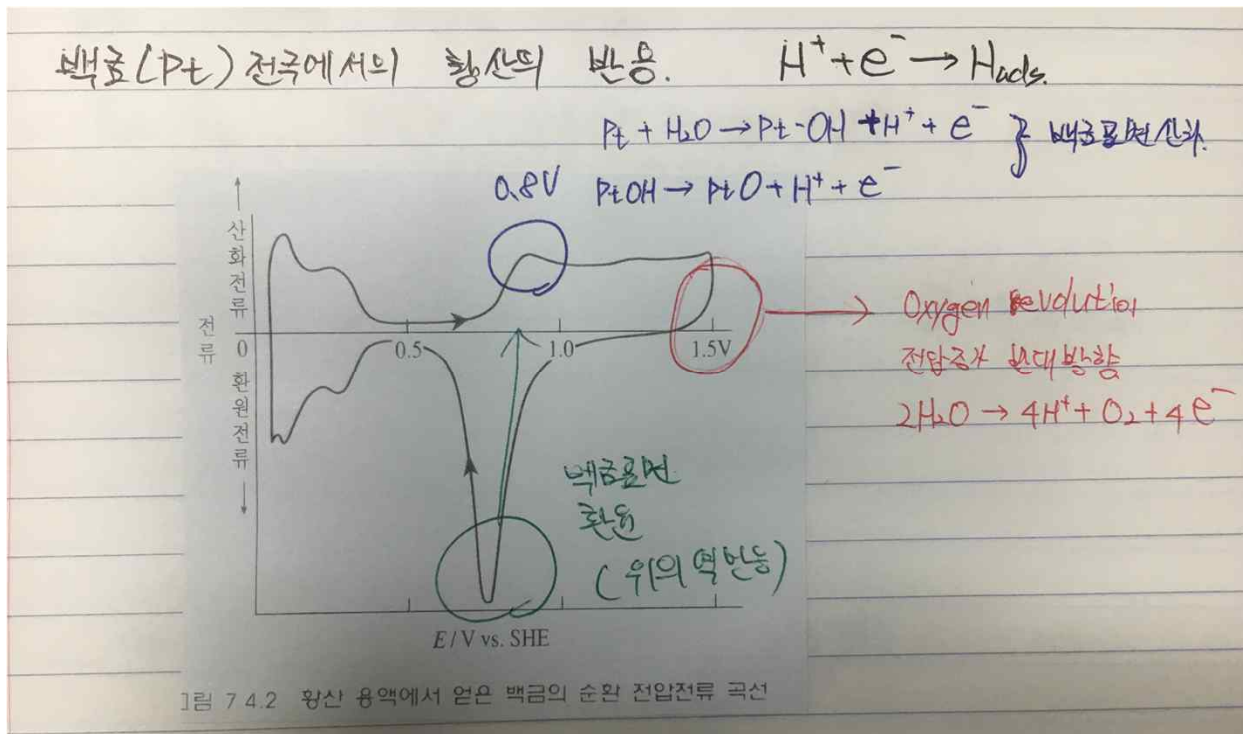 백금(Pt) 전극에서의 황산의 반응. H⁺ + e⁻ → Hads.
Pt + H₂O → Pt-OH + H⁺ + e⁻ } 백금표면산화.
0.8V PtOH → PtO + H⁺ + e⁻
산화전류
전류
0
환원전류
0.5
1.0
1.5V
Oxygen evolution
전압증가 반대방향
2H₂O → 4H⁺ + O₂ + 4e⁻
백금표면
환원
(위의 역반응)
E / V vs. SHE
림 7 4.2 황산 용액에서 얻은 백금의 순환 전압전류 곡선